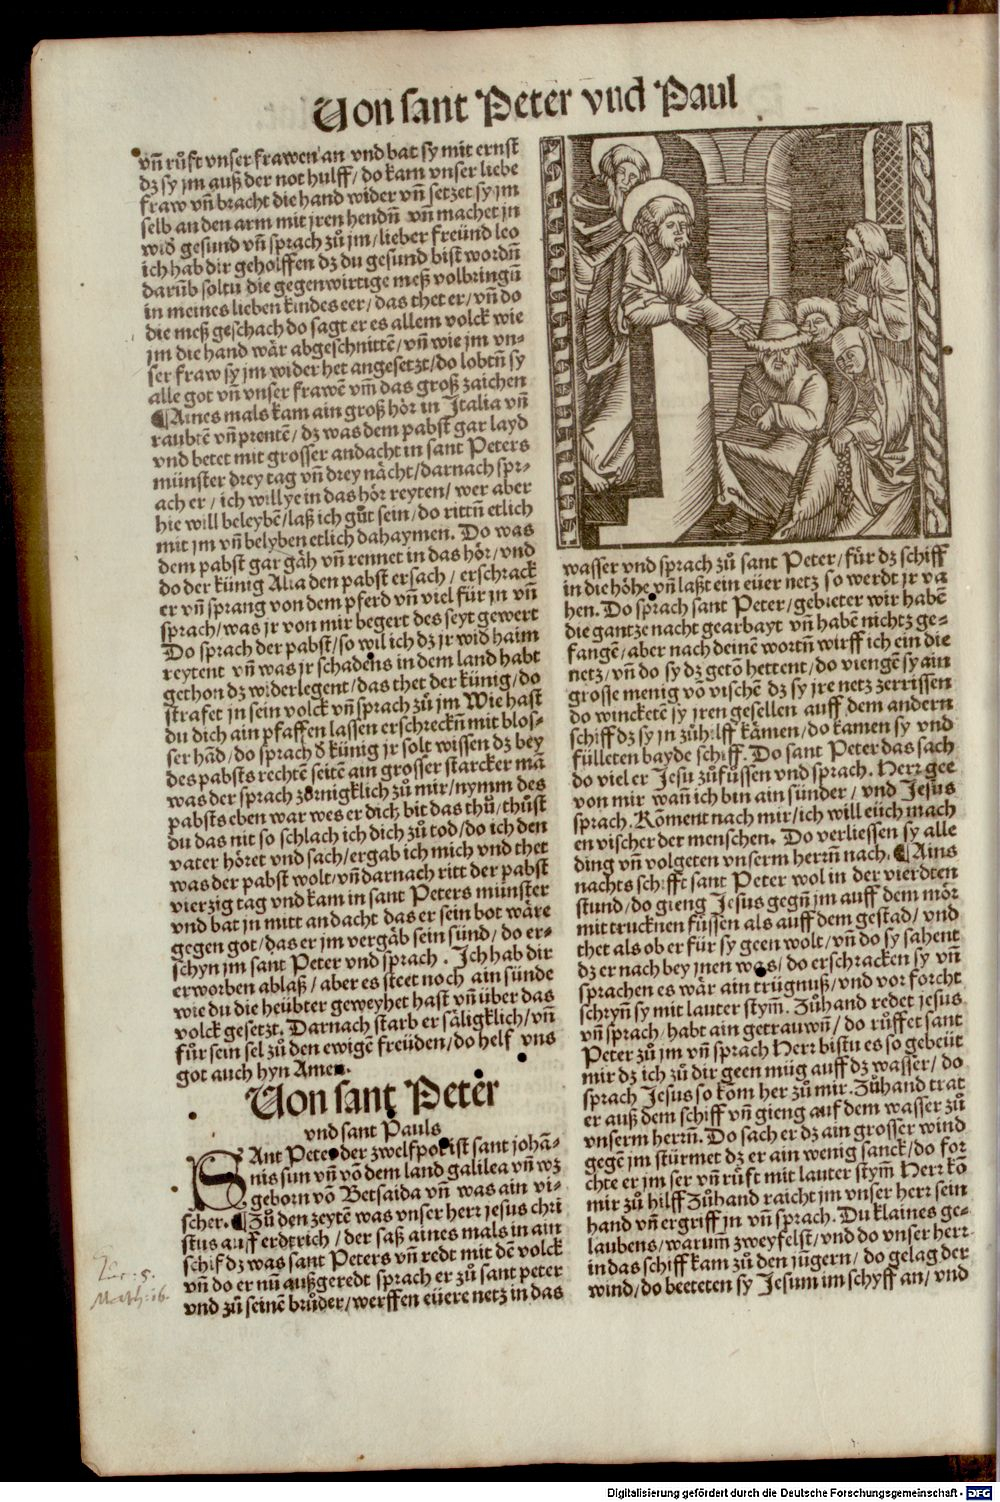 Von sant Peter vnd Paul
vñ růft vnser frawen an vnd bat sy mit ernst
dz sy jm auß der not hulff / do kam vnser liebe
fraw vñ bracht die hand wider vñ setzet sy jm
selb an den arm mit jren hendñ vñ machet jn
wid gesund vñ sprach zů jm / lieber freünd leo
ich hab dir geholffen dz du gesund bist wordñ
darüb soltu die gegenwirtige meß volbringñ
in meines lieben kindes eer / das thet er / vñ do
die meß geschach do sagt er es allem volck wie
jm die hand wär abgeschnittē / vñ wie jm vn-
ser fraw sy jm wider het angesetzt / do lobtñ sy
alle got vñ vnser frawē vm̄ das groß zaichen
¶ Aines mals kam ain groß hör in Italia vñ
raubtē vñ prentē / dz was dem pabst gar layd
vnd betet mit grosser andacht in sant Peters
münster drey tag vñ drey nächt / darnach spr-
ach er / ich will ye in das hör reyten / wer aber
hie will beleybē / laß ich gůt sein / do rittñ etlich
mit jm vñ belyben etlich dahaymen. Do was
dem pabst gar gäh vñ rennet in das hör / vnd
do der künig Atila den pabst ersach / erschrack
er vñ sprang von dem pferd vñ viel für jn vñ
sprach / was jr von mir begert des seyt gewert
Do sprach der pabst / so wil ich dz jr wid haim
reytent vñ was jr schadens in dem land habt
gethon dz widerlegent / das thet der künig / do
strafet jn sein volck vñ sprach zů jm Wie hast
du dich ain pfaffen lassen erschreckñ mit blos-
ser hād / do sprach d künig jr solt wissen dz bey
des pabsts rechtē seitē ain grosser starcker mā
was der sprach zornigklich zů mir / nymm des
pabsts eben war wes er dich bit das thů / thůst
du das nit so schlach ich dich zů tod / do ich den
vater höret vnd sach / ergab ich mich vnd thet
was der pabst wolt / vñ darnach ritt der pabst
vierzig tag vnd kam in sant Peters münster
vnd bat jn mitt andacht das er sein bot wäre
gegen got / das er jm vergäb sein sünd / do er-
schyn jm sant Peter vnd sprach. Ich hab dir
erworben ablaß / aber es steet noch ain sünde
wie du die heübter geweyhet hast vñ über das
volck gesetzt. Darnach starb er säligklich / vñ
für sein sel zů den ewigē freüden / do helf vns
got auch hyn Amen.
Von sant Peter
vnd sant Pauls
SAnt Peter der zwelfpot ist sant johā-
nis sun vñ vō dem land galilea vñ wz
geborn vō Betsaida vñ was ain vi-
scher. ¶ Zů den zeytē was vnser herr jesus chri
stus auff erdtrich / der saß aines mals in ain
schif dz was sant Peters vñ redt mit dē volck
vñ do er nū außgeredt sprach er zů sant peter
vnd zů seinē brůder / werffen eüere netz in das
Luc: 5.
Math: 16.
wasser vnd sprach zů sant Peter / für dz schiff
in die höhe vñ laßt ein eüer netz so werdt jr va
hen. Do sprach sant Peter / gebieter wir habē
die gantze nacht gearbayt vñ habē nichtz ge-
fangē / aber nach deinē wortñ wirff ich ein die
netz / vñ do sy dz getō hettent / do viengē sy ain
grosse menig vō vischē dz sy jre netz zerrissen
do wincketē sy jren gesellen auff dem andern
schiff dz sy jn zů hilff kämen / do kamen sy vnd
fülleten bayde schiff. Do sant Peter das sach
do viel er Jesu zů füssen vnd sprach. Herr gee
von mir wañ ich bin ain sünder / vnd Jesus
sprach. Koment nach mir / ich will eüch mach
en vischer der menschen. Do verliessen sy alle
ding vñ volgeten vnserm herrñ nach. ¶ Ains
nachts schifft sant Peter wol in der vierdten
stund / do gieng Jesus gegñ jm auff dem mör
mit trucknen füssen als auff dem gestad / vnd
thet als ob er für sy geen wolt / vñ do sy sahent
dz er nach bey jnen was / do erschracken sy vñ
sprachen es wär ain trügnuß / vnd vor forcht
schryñ sy mit lauter stym̄. Zůhand redet jesus
vñ sprach / habt ain getrauwñ / do růffet sant
Peter zů jm vñ sprach Herr bistu es so gebeüt
mir dz ich zů dir geen müg auff dz wasser / do
sprach Jesus so kom her zů mir. Zůhand trat
er auß dem schiff vñ gieng auf dem wasser zů
vnserm herrñ. Do sach er dz ain grosser wind
gegē jm stürmet dz er ain wenig sanck / do for
chte er jm ser vñ růft mit lauter stym̄ Herr kō
mir zů hilff Zůhand raicht jm vnser herr sein
hand vñ ergriff jn vñ sprach. Du klaines ge-
laubens / warum̄ zweyfelst / vnd do vnser herr
in das schiff kam zů den jüngern / do gelag der
wind / do beeteten sy Jesum im schyff an / vnd
Digitalisierung gefördert durch die Deutsche Forschungsgemeinschaft - DFG